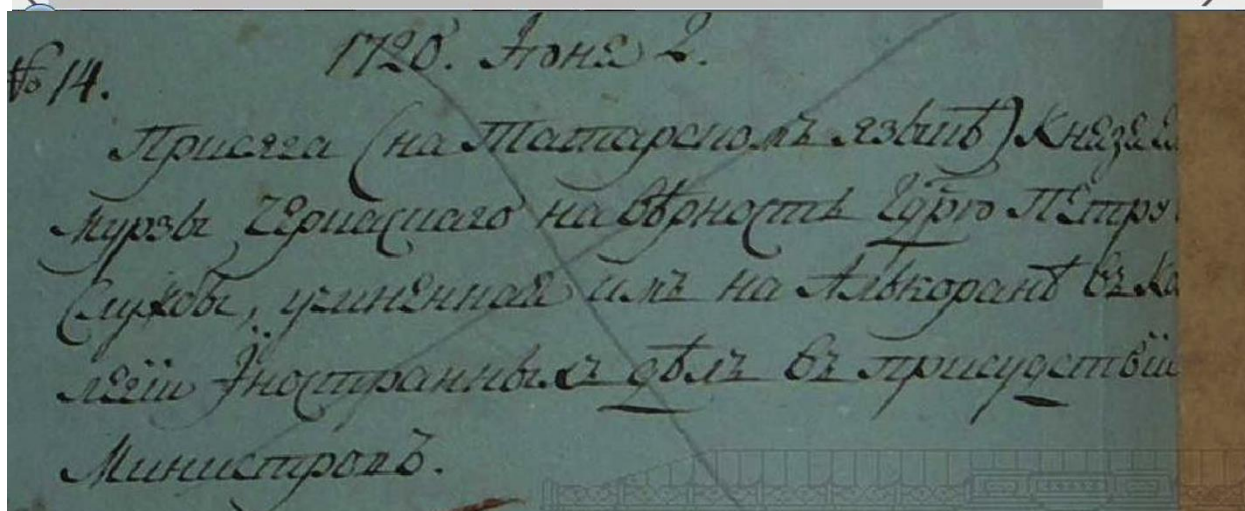 № 14.
1720. Іюня 2.
Присяга (на Татарскомъ языкѣ) Князя
Мурзы Черкаскаго на вѣрность Гдрю Петру
Службы, учиненная имъ на Алькоранѣ въ Ко
легіи Іностранныхъ дѣлъ въ присудствіи
Министровъ.